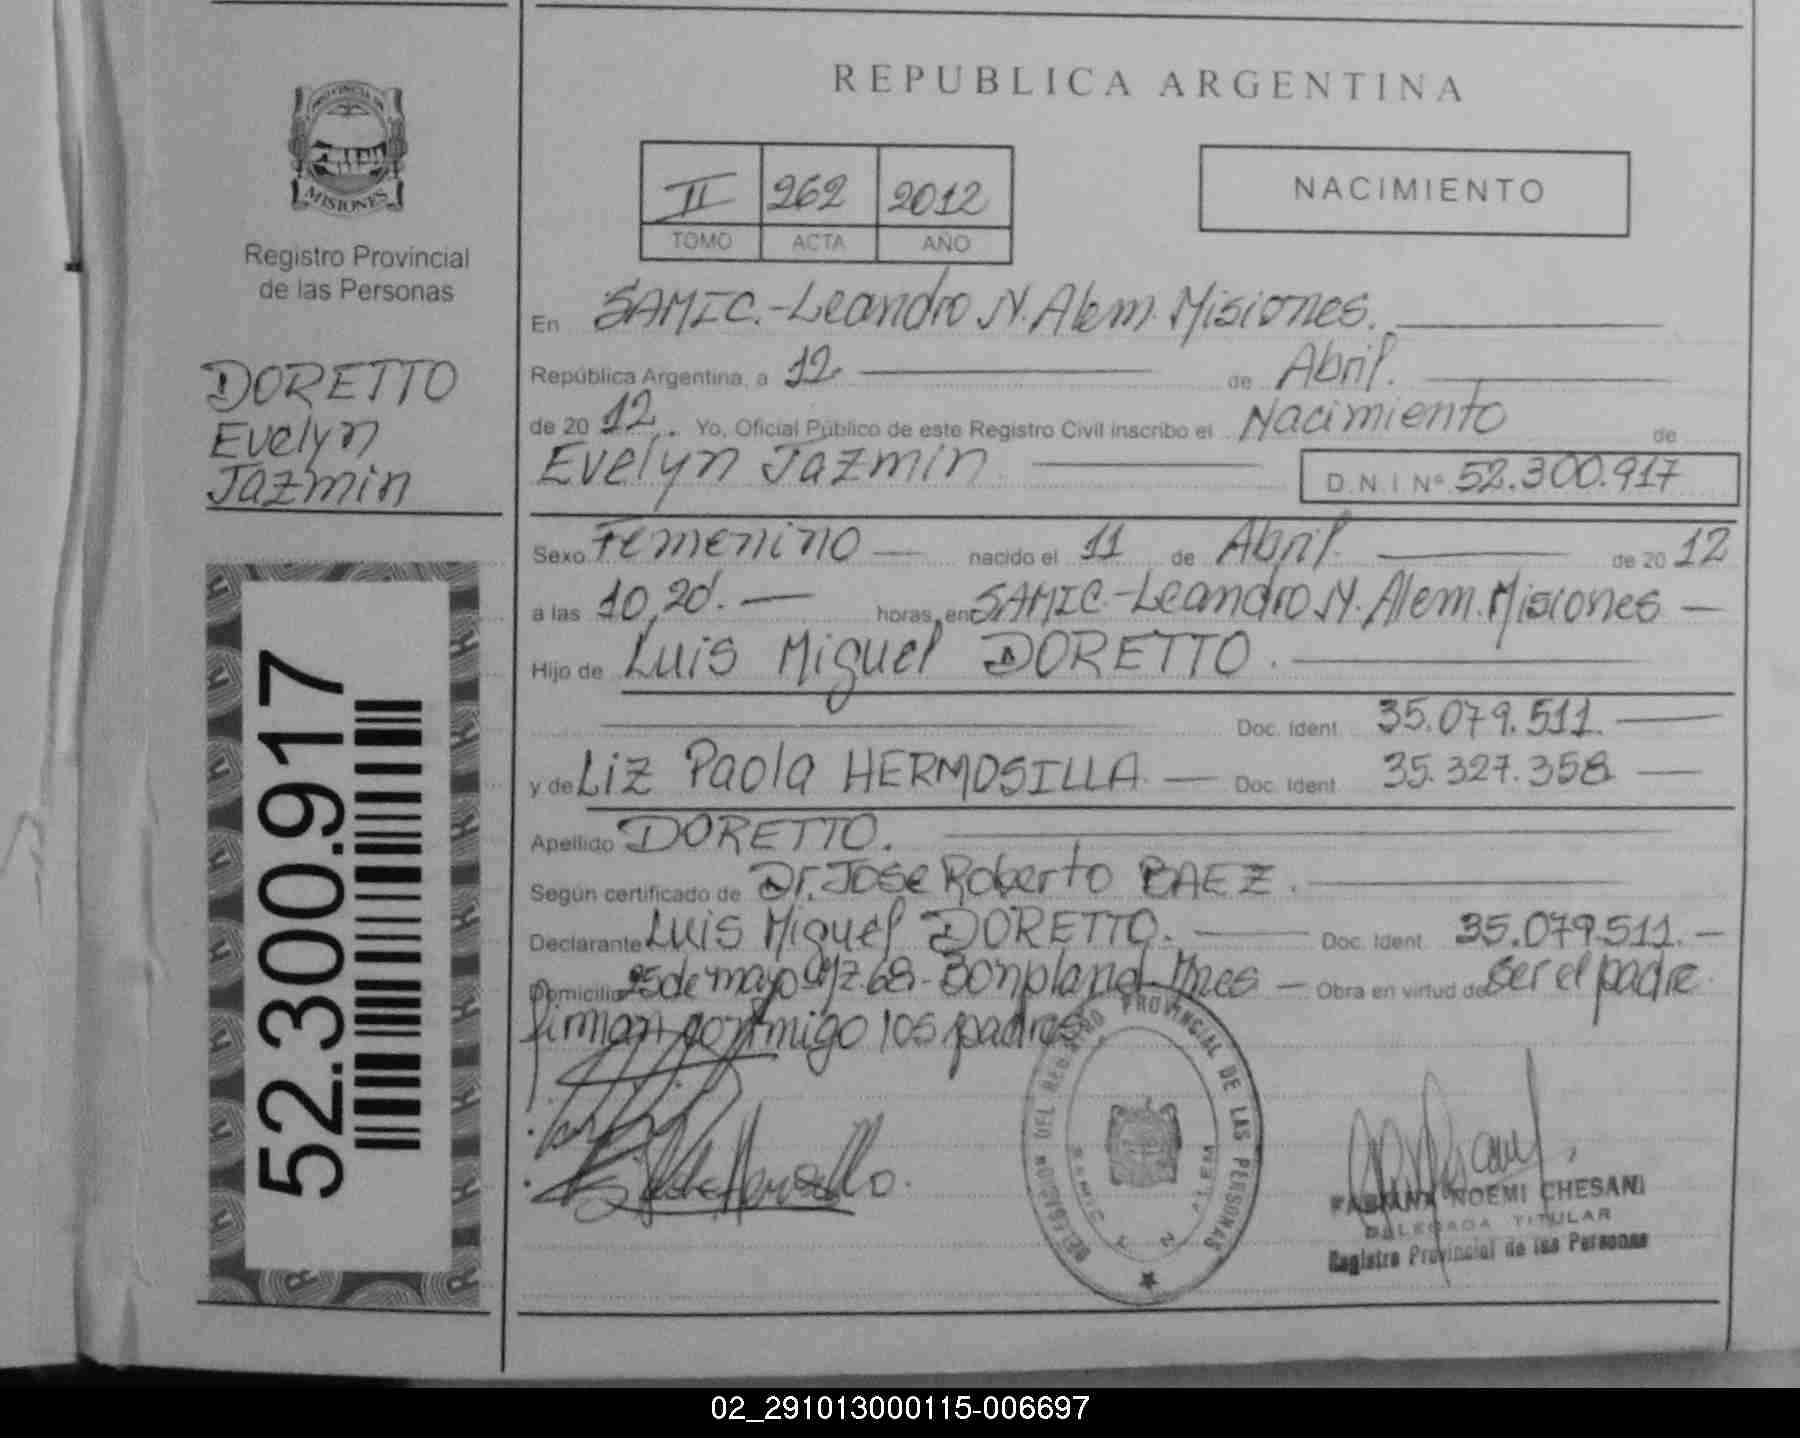 REPUBLICA ARGENTINA
PROVINCIA DE
MISIONES
Registro Provincial
de las Personas
DORETTO
Evelyn
Jazmin
52.300.917
II 262 2012
TOMO ACTA AÑO
NACIMIENTO
En SAMIC.-Leandro N. Alem. Misiones.
República Argentina, a 12 de Abril.
de 20 12. Yo, Oficial Público de este Registro Civil inscribo el Nacimiento de
Evelyn Jazmin D.N.I Nº 52.300.917
Sexo Femenino nacido el 11 de Abril. de 20 12
a las 10,20. horas, en SAMIC.-Leandro N. Alem. Misiones
Hijo de Luis Miguel DORETTO.
Doc. Ident. 35.079.511.
y de Liz Paola HERMOSILLA Doc. Ident. 35.327.358
Apellido DORETTO.
Según certificado de Dr. Jose Roberto BAEZ.
Declarante Luis Miguel DORETTO. Doc. Ident. 35.079.511.
Domicilio 25 de mayo Mz. 68- Bonpland-Mnes Obra en virtud de ser el padre.
firman conmigo los padres
DELEGACION DEL REGISTRO PROVINCIAL DE LAS PERSONAS
SAMIC L N ALEM
FABIANA NOEMI CHESANI
DELEGADA TITULAR
Registro Provincial de las Personas
02_291013000115-006697